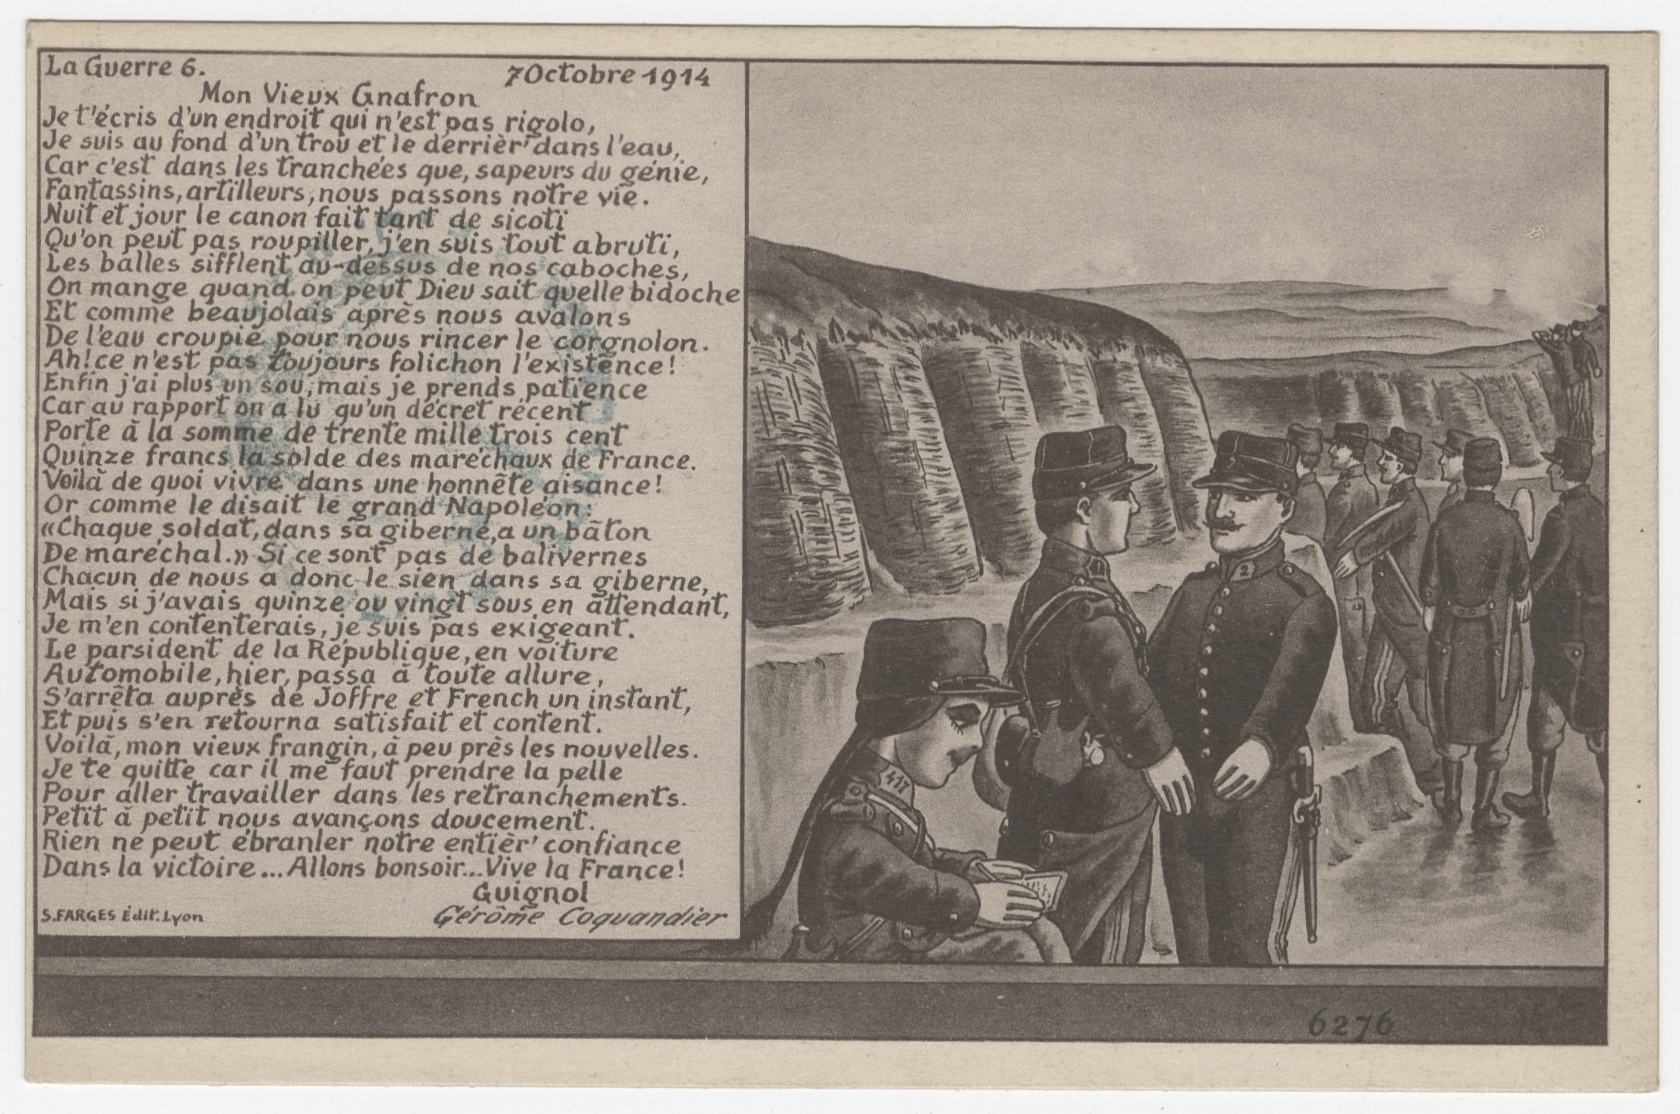 La Guerre 6.
7 Octobre 1914
Mon Vieux Gnafron
Je t'écris d'un endroit qui n'est pas rigolo,
Je suis au fond d'un trou et le derrièr' dans l'eau,
Car c'est dans les tranchées que, sapeurs du génie,
Fantassins, artilleurs, nous passons notre vie.
Nuit et jour le canon fait tant de sicoti
Qu'on peut pas roupiller, j'en suis tout abruti,
Les balles sifflent au-dessus de nos caboches,
On mange quand on peut Dieu sait quelle bidoche
Et comme beaujolais après nous avalons
De l'eau croupie pour nous rincer le corgnolon.
Ah! ce n'est pas toujours folichon l'existence!
Enfin j'ai plus un sou, mais je prends patience
Car au rapport on a lu qu'un décret récent
Porte à la somme de trente mille trois cent
Quinze francs la solde des maréchaux de France.
Voilà de quoi vivre dans une honnête aisance!
Or comme le disait le grand Napoléon:
«Chaque soldat, dans sa giberne, a un bâton
De maréchal.» Si ce sont pas de balivernes
Chacun de nous a donc le sien dans sa giberne,
Mais si j'avais quinze ou vingt sous en attendant,
Je m'en contenterais, je suis pas exigeant.
Le parsident de la République, en voiture
Automobile, hier, passa à toute allure,
S'arrêta auprès de Joffre et French un instant,
Et puis s'en retourna satisfait et content.
Voilà, mon vieux frangin, à peu près les nouvelles.
Je te quitte car il me faut prendre la pelle
Pour aller travailler dans les retranchements.
Petit à petit nous avançons doucement.
Rien ne peut ébranler notre entièr' confiance
Dans la victoire... Allons bonsoir... Vive la France!
Guignol
S. FARGES Édit. Lyon
Gérôme Coquandier
417
2
6276